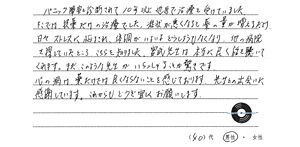 パニック障害と診断されて10年以上他院で治療を受けていました。
そこでは投薬だけの治療でした。症状が悪くなると薬の量が増えるだけ
日々ストレスに悩まされ、体調がいよいよどうしようもなくなり、他の病院
を探していたところこちらを知りました。先生は本当に良く話を聴いて
くれます。まだこのような先生がいらっしゃることが驚きです。
心の病は薬だけでは良くならないことを感じております。先生との出会いに
感謝しています。これからもどうぞ宜しくお願いします。
(40)代 男性・女性